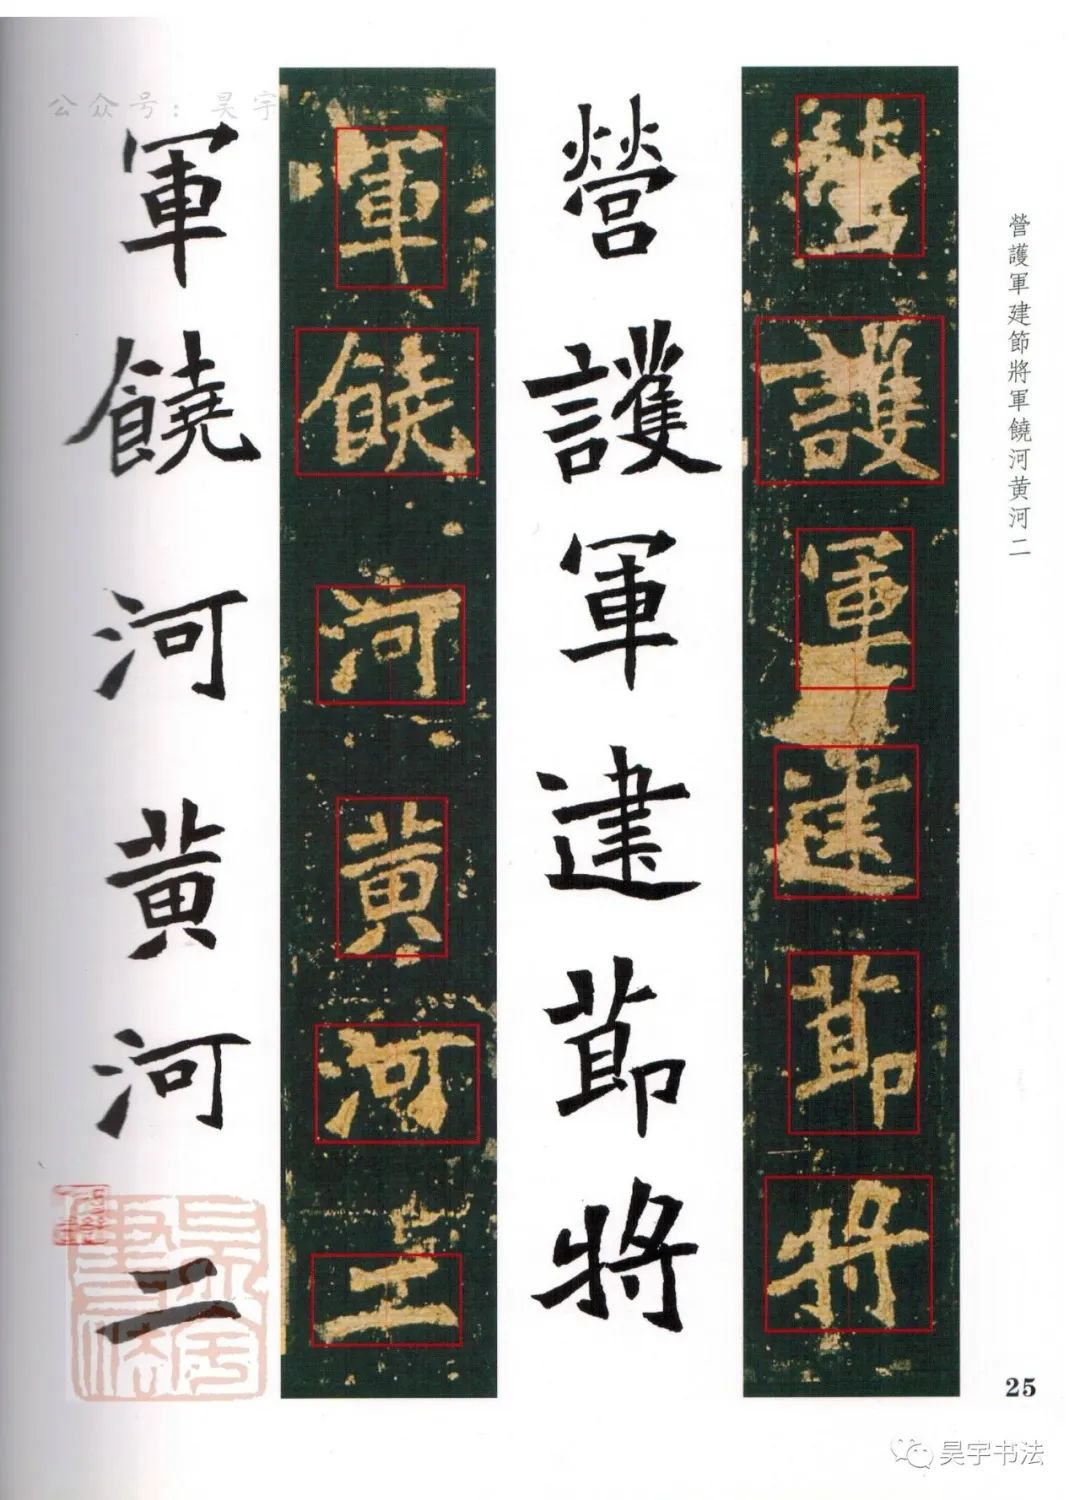 營護軍建節將軍饒河黄河二
營護軍建節將
營護軍建節將
軍饒河黄河二
軍饒河黄河二
公众号：昊宇
25
昊宇书法